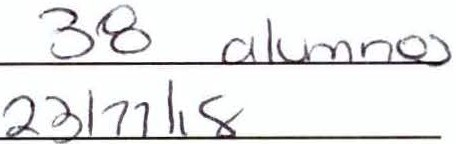 38 alumnos
23/11/18